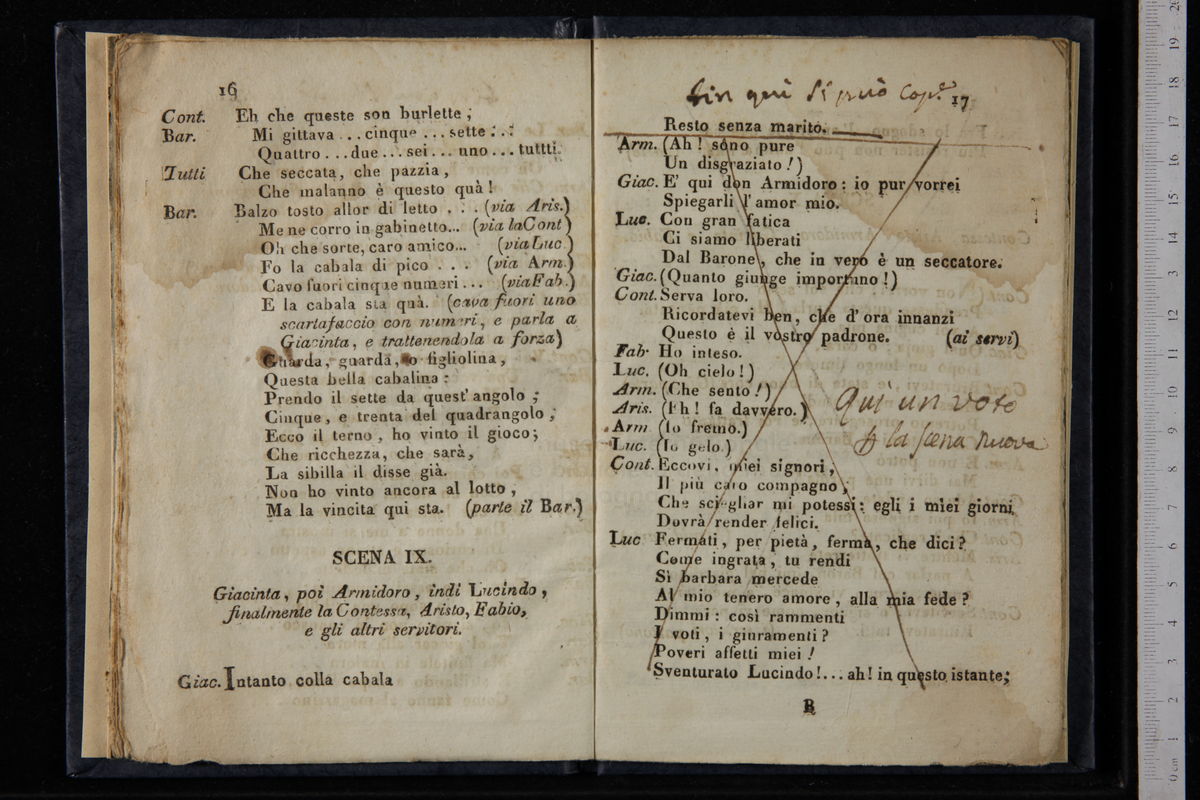 16
Cont. Eh che queste son burlette;
Bar. Mi gittava . . cinque . . . sette . . .
Quattro . . . due . . . sei . . . uno . . . tuttti.
Tutti Che seccata, che pazzia,
Che malanno è questo quà!
Bar. Balzo tosto allor di letto . . . (via Aris.)
Me ne corro in gabinetto... (via la Cont)
Oh che sorte, caro amico... (via Luc.)
Fo la cabala di pico . . . (via Arm.)
Cavo fuori cinque numeri . . . (via Fab.)
E la cabala sta quà. (cava fuori uno
scartafaccio con numeri, e parla a
Giacinta, e trattenendola a forza)
Guarda, guarda, o figliolina,
Questa bella cabalina:
Prendo il sette da quest' angolo;
Cinque, e trenta del quadrangolo;
Ecco il terno, ho vinto il gioco;
Che ricchezza, che sarà,
La sibilla il disse già.
Non ho vinto ancora al lotto,
Ma la vincita qui sta. (parte il Bar.)
SCENA IX.
Giacinta, poi Armidoro, indi Lucindo,
finalmente la Contessa, Aristo, Fabio,
e gli altri servitori.
Giac. Intanto colla cabala
Fin quì si può cop.
17
Resto senza marito.
Arm. (Ah! sono pure
Un disgraziato!)
Giac. E' qui don Armidoro: io pur vorrei
Spiegarli l'amor mio.
Luc. Con gran fatica
Ci siamo liberati
Dal Barone, che in vero è un seccatore.
Giac. (Quanto giunge importuno!)
Cont. Serva loro.
Ricordatevi ben, che d' ora innanzi
Questo è il vostro padrone. (ai servi)
Fab. Ho inteso.
Luc. (Oh cielo!)
Arm. (Che sento!)
Aris. (Eh! fa davvero.)
Arm (Io fremo.)
Luc. (Io gelo.)
Quì un voto
la scena nuova
Cont. Eccovi, miei signori,
Il più caro compagno,
Che scieglier mi potessi: egli i miei giorni
Dovrà render felici.
Luc Fermati, per pietà, ferma, che dici?
Come ingrata, tu rendi
Sì barbara mercede
Al mio tenero amore, alla mia fede?
Dimmi: così rammenti
I voti, i giuramenti?
Poveri affetti miei!
Sventurato Lucindo!... ah! in questo istante;
B